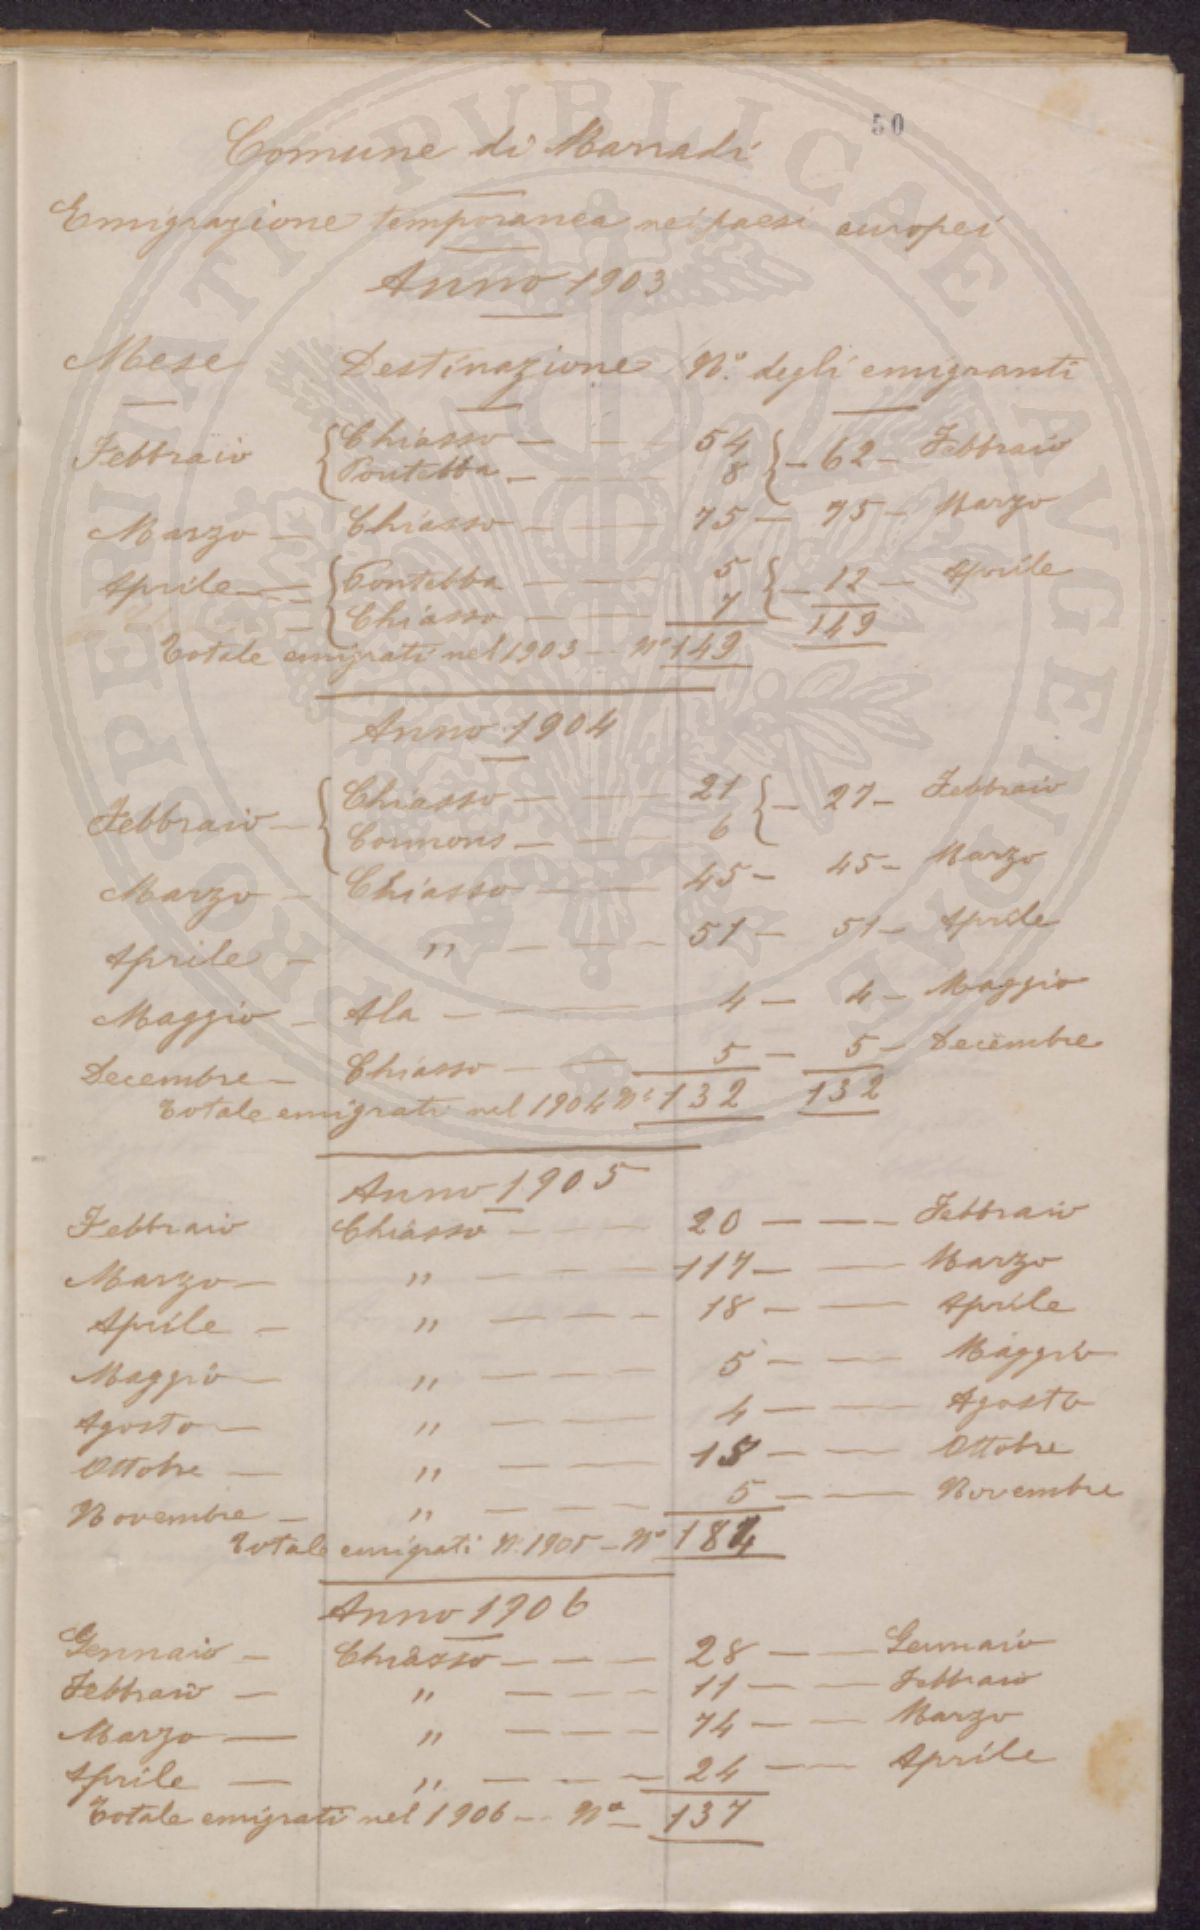 50
Comune di Marradi
Emigrazione temporanea nei paesi europei
Anno 1903
Mese Destinazione N.º degli emigranti
Febbraio { Chiasso — — — 54 } — 62 — Febbraio
Pontebba — — — 8
Marzo — Chiasso — — 75 — 75 — Marzo
Aprile — { Pontebba — — — 5 } — 12 — Aprile
— Chiasso — — — 7 149
Totale emigrati nel 1903 — Nº 149
Anno 1904
Febbraio — { Chiasso — — — 21 } — 27 — Febbraio
Cormons — — — 6
Marzo — Chiasso — — 45 — 45 — Marzo
Aprile — " — — — 51 — 51 — Aprile
Maggio — Ala — — — 4 — 4 — Maggio
Decembre — Chiasso — — 5 — 5 — Decembre
Totale emigrati nel 1904 Nº 132 132
Anno 1905
Febbraio Chiasso — — — 20 — — — Febbraio
Marzo — " — — — — 117 — — Marzo
Aprile — " — — — — 18 — — Aprile
Maggio — " — — — 5 — — Maggio
Agosto — " — — — 4 — — Agosto
Ottobre — " — — — 15 — — Ottobre
Novembre — " — — — 5 — — Novembre
Totale emigrati N. 1905 — Nº 184
Anno 1906
Gennaio — Chiasso — — — 28 — — Gennaio
Febbraio — " — — — 11 — — Febbraio
Marzo — " — — — — 74 — — Marzo
Aprile — " — — — — 24 — — Aprile
Totale emigrati nel 1906 — Nº — 137
PROSPERITATI PVBLICAE AVGENDAE